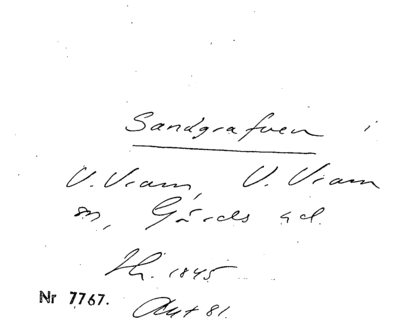 Sandgrafven i
V. Vram, V. Vram
sn, Gärds hd.
Th. 1845
Nr 7767. Akt 81.